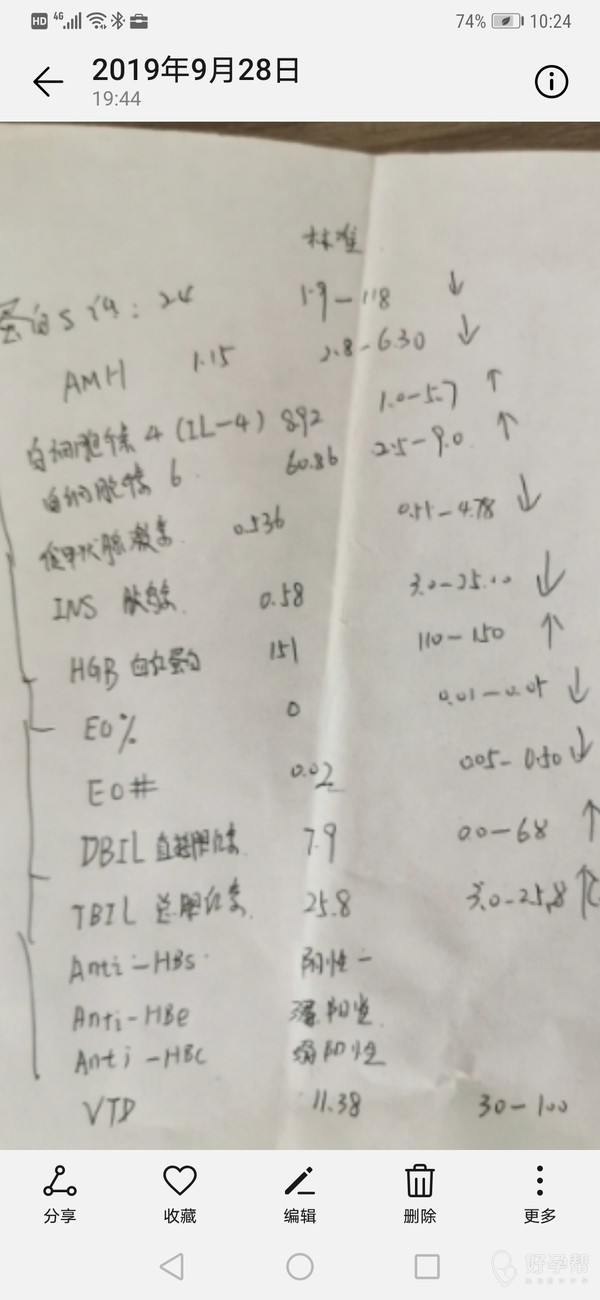 HD 4G 74% 10:24
2019年9月28日
19:44
标准
蛋白S 活: 24 ↓
AMH 1.15 2.8-6.30 ↓
白细胞介素 4 (IL-4) 892 1.0-5.7 ↑
白细胞介素 6 60.86 2.5-9.0 ↑
促甲状腺激素 0.536 0.55-4.78 ↓
INS 胰岛素 0.58 3.0-25.00 ↓
HGB 血红蛋白 151 110-150 ↑
EO% 0 0.01-0.05 ↓
EO# 0.02 0.05-0.50 ↓
DBIL 直接胆红素 7.9 0.0-6.8 ↑
TBIL 总胆红素 25.8 3.0-25.8 ↑
Anti-HBs 阴性-
Anti-HBe 阳性
Anti-HBc 阳性
VTD 11.38 30-100
分享
收藏
编辑
删除
更多
好孕帮